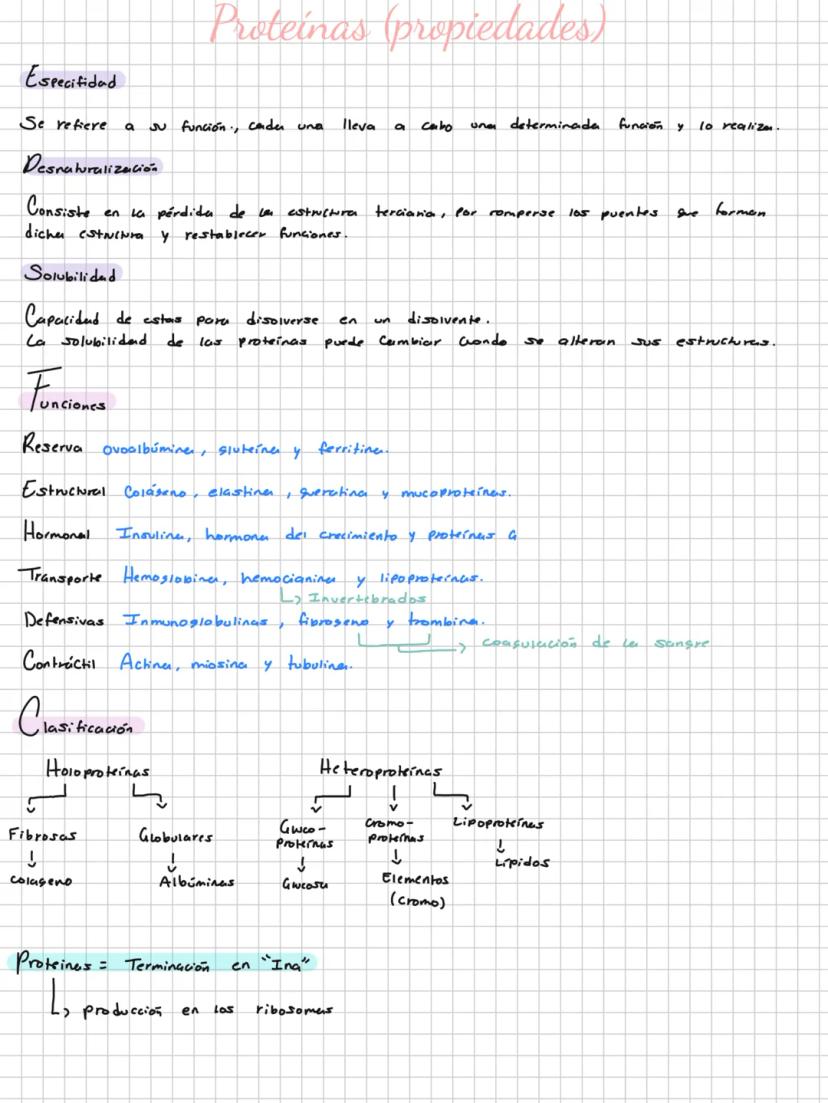 Proteínas (propiedades)
Especifidad
Se refiere a su función., cada una lleva a cabo una determinada función y lo realiza.
Desnaturalización
Consiste en la pérdida de la estructura terciaria, por romperse los puentes que forman
dicha estructura y restablecer funciones.
Solubilidad
Capacidad de estas para disolverse en un disolvente.
La solubilidad de las proteínas puede cambiar cuando se alteran sus estructuras.
Funciones
Reserva ovoalbúmina, gluteína y ferritina.
Estructural Colágeno, elastina, queratina y mucoproteínas.
Hormonal Insulina, hormona del crecimiento y proteínas G
Transporte Hemoglobina, hemocianina y lipoproteínas.
↳ Invertebrados
Defensivas Inmunoglobulinas, fibrogeno y trombina.
→ coagulación de la sangre
Contráctil Actina, miosina y tubulina.
Clasificación
Holoproteínas Heteroproteínas
Fibrosas Globulares Gluco- Cromo- Lipoproteínas
proteínas proteínas
colageno Albúminas Glucosa Elementos Lípidos
(cromo)
Proteinas = Terminación en "Ina"
↳ producción en los ribosomas